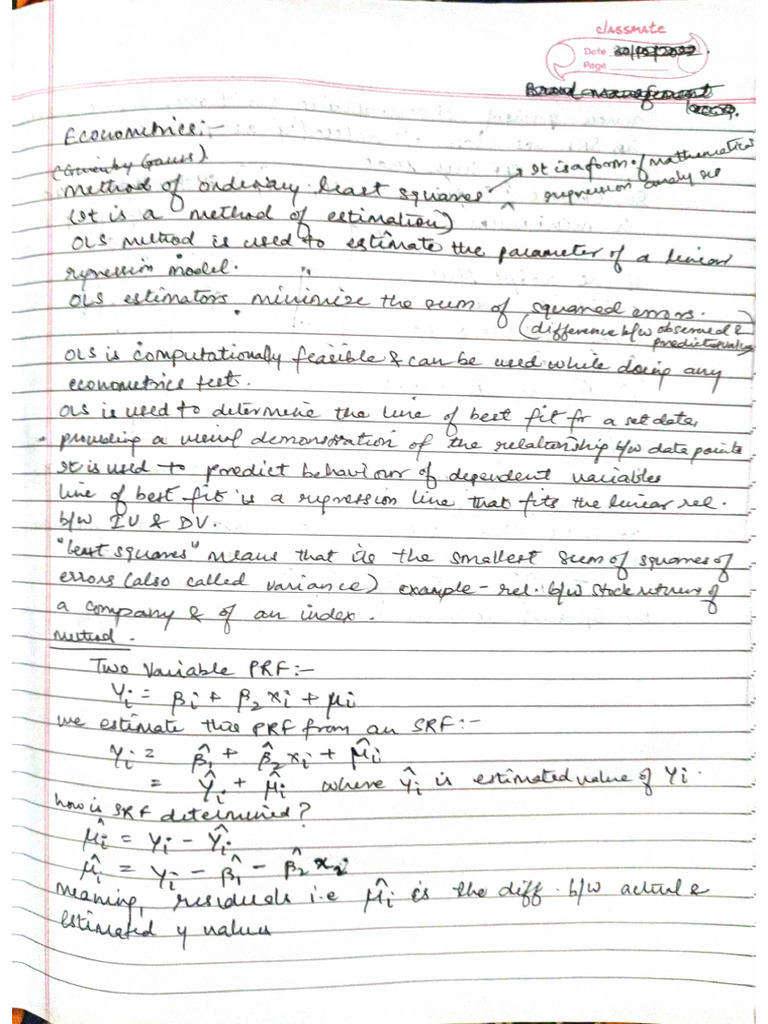 classmate
Date 30/10/2022.
Page
Brand management
Econometrics:-
(Given by Gauss).
Method of ordinary least squares → It is a form of mathematical
regression analysis
(It is a method of estimation)
OLS method is used to estimate the parameter of a linear
regression model.
OLS estimators minimize the sum of squared errors.
(difference b/w observed &
predicted values)
OLS is computationally feasible & can be used while doing any
econometrics test.
OLS is used to determine the line of best fit for a set data,
providing a visual demonstration of the relationship b/w data points
It is used to predict behaviour of dependent variables
line of best fit is a regression line that fits the linear rel.
b/w IV & DV.
"least squares" means that it's the smallest sum of squares of
errors (also called variance) example - rel. b/w stock returns of
a company & of an index.
Method.
Two Variable PRF:-
Yi = βi + β2 xi + μi
we estimate this PRF from an SRF:-
Yi = β̂1 + β̂2 xi + μ̂i
= Ŷi + μ̂i where Ŷi is estimated value of Yi.
how is SRF determined?
μ̂i = Yi - Ŷi
μ̂i = Yi - β̂1 - β̂2 x2i
meaning, residuals i.e μ̂i is the diff. b/w actual &
estimated y values